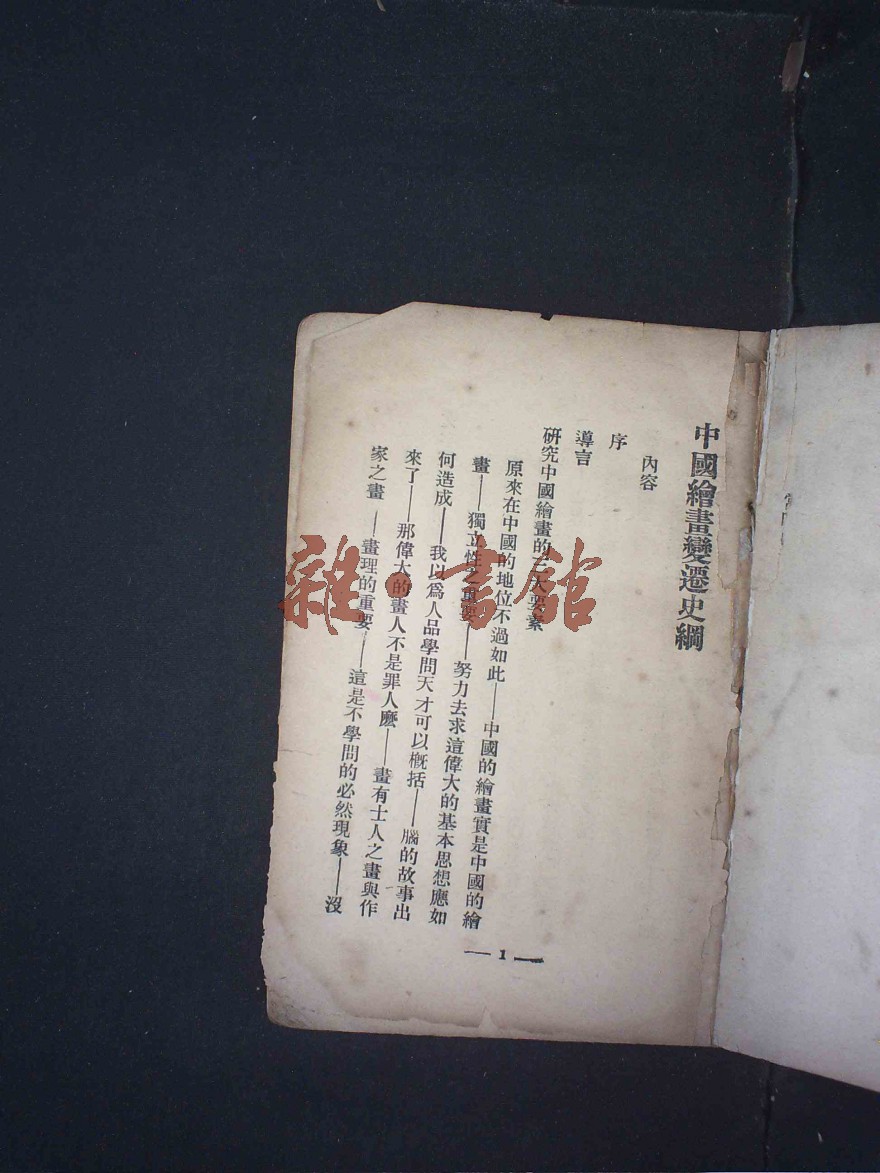 中國繪畫變遷史綱
內容
序
導言
研究中國繪畫的三大要素
原來在中國的地位不過如此——中國的繪畫實是中國的繪
畫——獨立性之重要——努力去求這偉大的基本思想應如
何造成——我以爲人品學問天才可以概括——腦的故事出
來了——那偉大的畫人不是罪人麽——畫有士人之畫與作
家之畫——畫理的重要——這是不學問的必然現象——沒
— 1 —
雜·書館